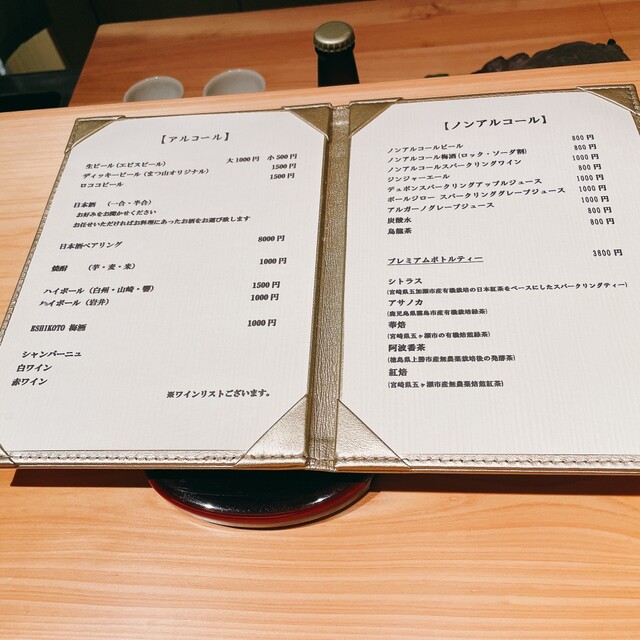 【アルコール】
生ビール(エビスビール) 大1000円 小500円
ディッキービール(まつ山オリジナル) 1500円
ロココビール 1500円
日本酒 (一合・半合)
お好みをお聞かせください
お任せいただければお料理にあったお酒をお選び致します
日本酒ペアリング 8000円
焼酎 (芋・麦・米) 1000円
ハイボール(白州・山崎・響) 1500円
ハイボール(岩井) 1000円
ESHIKOTO 梅酒 1000円
シャンパーニュ
白ワイン
赤ワイン
※ワインリストございます。
【ノンアルコール】
ノンアルコールビール 800円
ノンアルコール梅酒(ロック・ソーダ割) 800円
ノンアルコールスパークリングワイン 1000円
ジンジャーエール 800円
デュポンスパークリングアップルジュース 1000円
ポールジロー スパークリンググレープジュース 1000円
アルガーノグレープジュース 1000円
炭酸水 800円
烏龍茶 800円
プレミアムボトルティー 3800円
シトラス
(宮崎県五ヶ瀬市産有機栽培の日本紅茶をベースにしたスパークリングティー)
アサノカ
(鹿児島県霧島市産有機栽培緑茶)
春焙
(宮崎県五ヶ瀬市の有機焙煎緑茶)
阿波番茶
(徳島県上勝市産無農薬栽培後の発酵茶)
紅焙
(宮崎県五ヶ瀬市産無農薬焙煎紅茶)